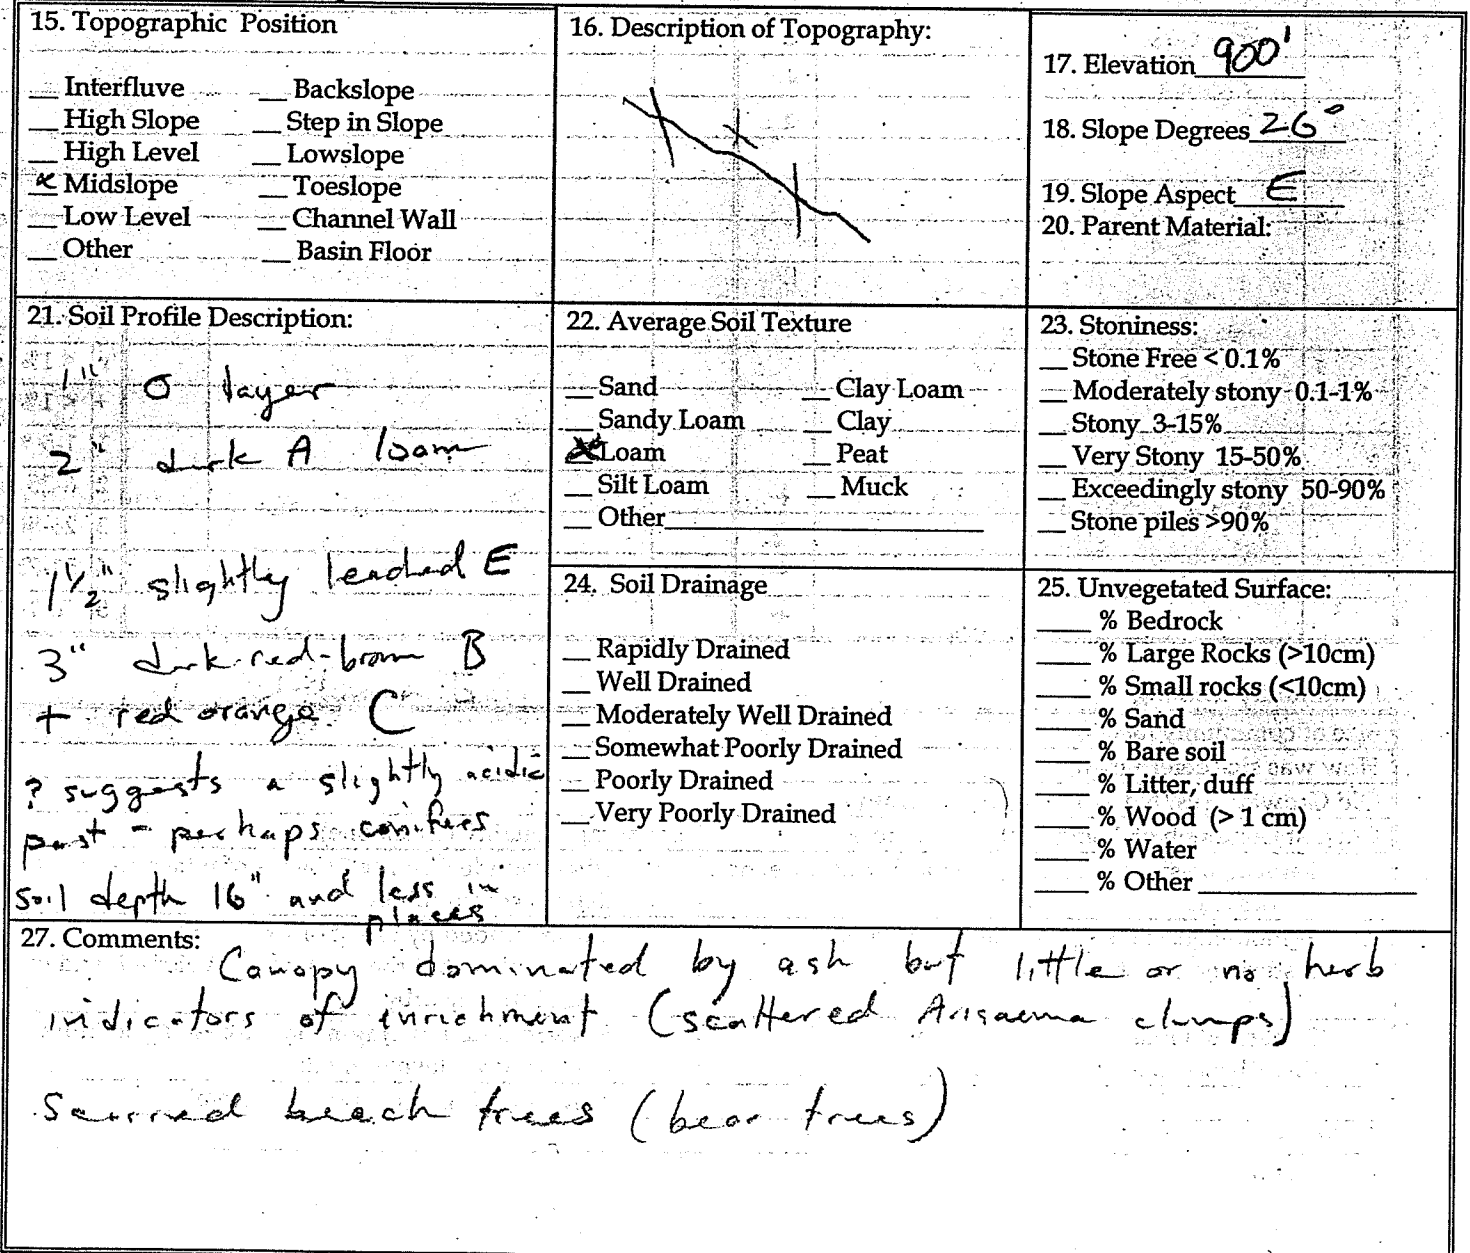 15. Topographic Position
__ Interfluve __ Backslope
__ High Slope __ Step in Slope
__ High Level __ Lowslope
x Midslope __ Toeslope
__ Low Level __ Channel Wall
__ Other __ Basin Floor
16. Description of Topography:
x
17. Elevation 900'
18. Slope Degrees 26°
19. Slope Aspect E
20. Parent Material:
21. Soil Profile Description:
1" O layer
2" dark A loam
1 1/2" slightly leached E
3" dark red-brown B
+ red orange C
? suggests a slightly acidic
past - perhaps conifers
soil depth 16" and less in
places
22. Average Soil Texture
__ Sand __ Clay Loam
__ Sandy Loam __ Clay
X Loam __ Peat
__ Silt Loam __ Muck
__ Other____
23. Stoniness:
__ Stone Free < 0.1%
__ Moderately stony 0.1-1%
__ Stony 3-15%
__ Very Stony 15-50%
__ Exceedingly stony 50-90%
__ Stone piles >90%
24. Soil Drainage
__ Rapidly Drained
__ Well Drained
__ Moderately Well Drained
__ Somewhat Poorly Drained
__ Poorly Drained
__ Very Poorly Drained
25. Unvegetated Surface:
____ % Bedrock
____ % Large Rocks (>10cm)
____ % Small rocks (<10cm)
____ % Sand
____ % Bare soil
____ % Litter, duff
____ % Wood (> 1 cm)
____ % Water
____ % Other ____
27. Comments:
Canopy dominated by ash but little or no herb
indicators of enrichment (scattered Arisaema clumps)
Scarred beech trees (bear trees)